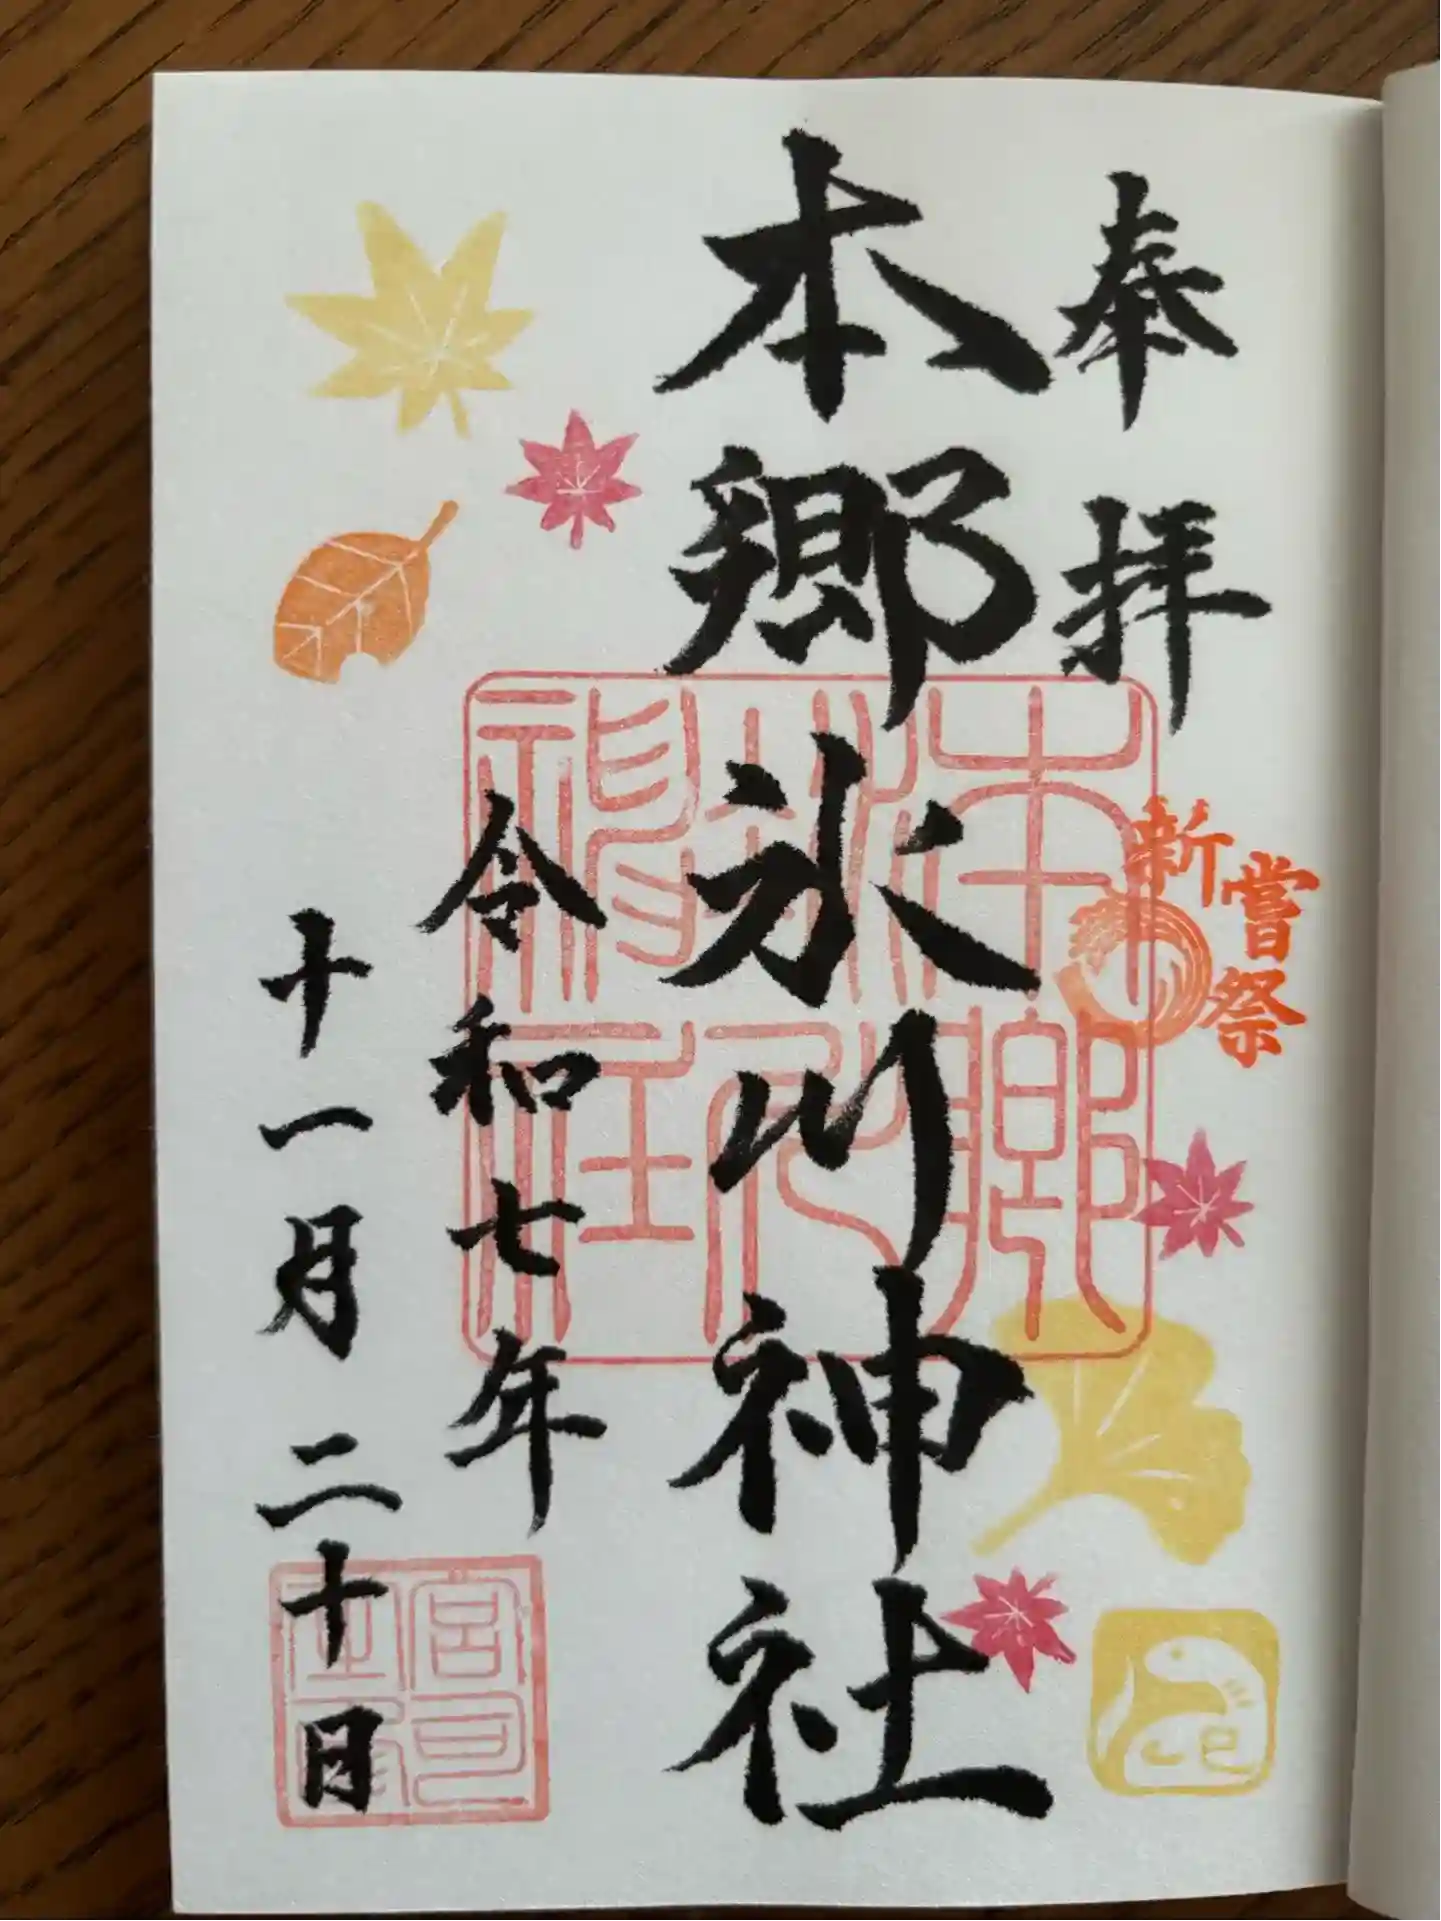 奉拝
新嘗祭
本郷氷川神社
本郷氷川神社
令和七年
十一月二十日
巳